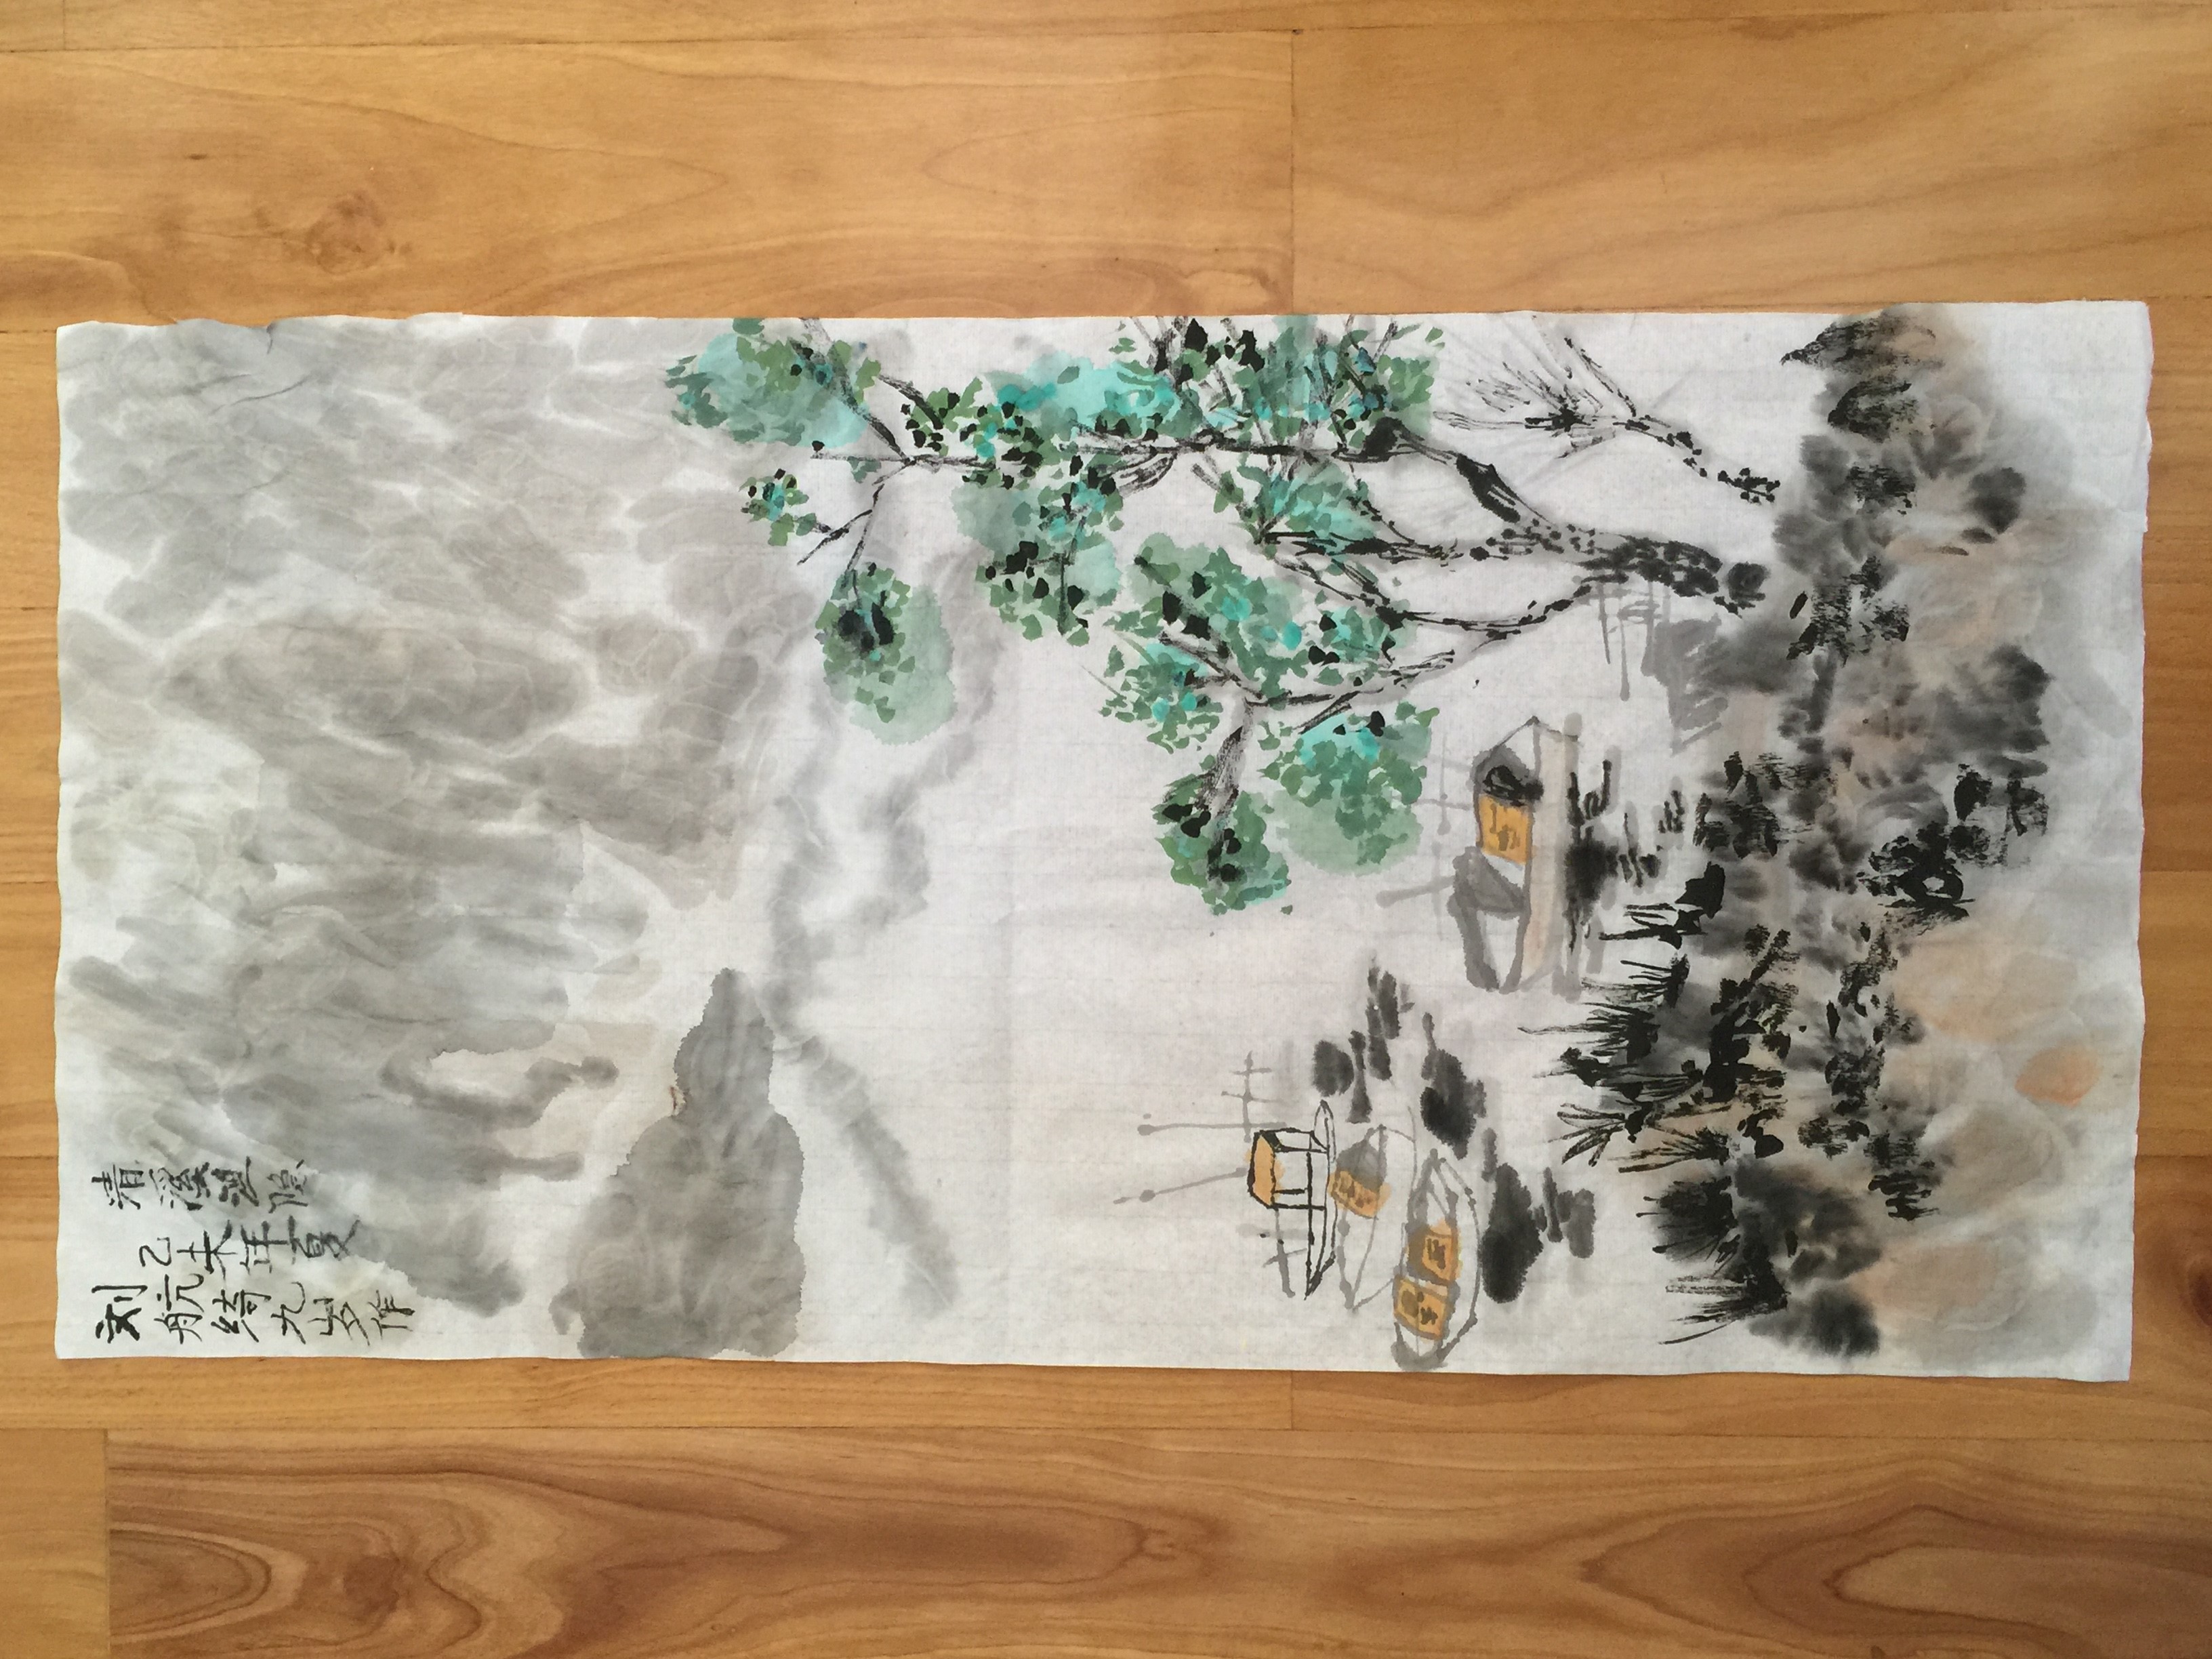 清溪渔隐
乙未年夏
刘航绮九岁作